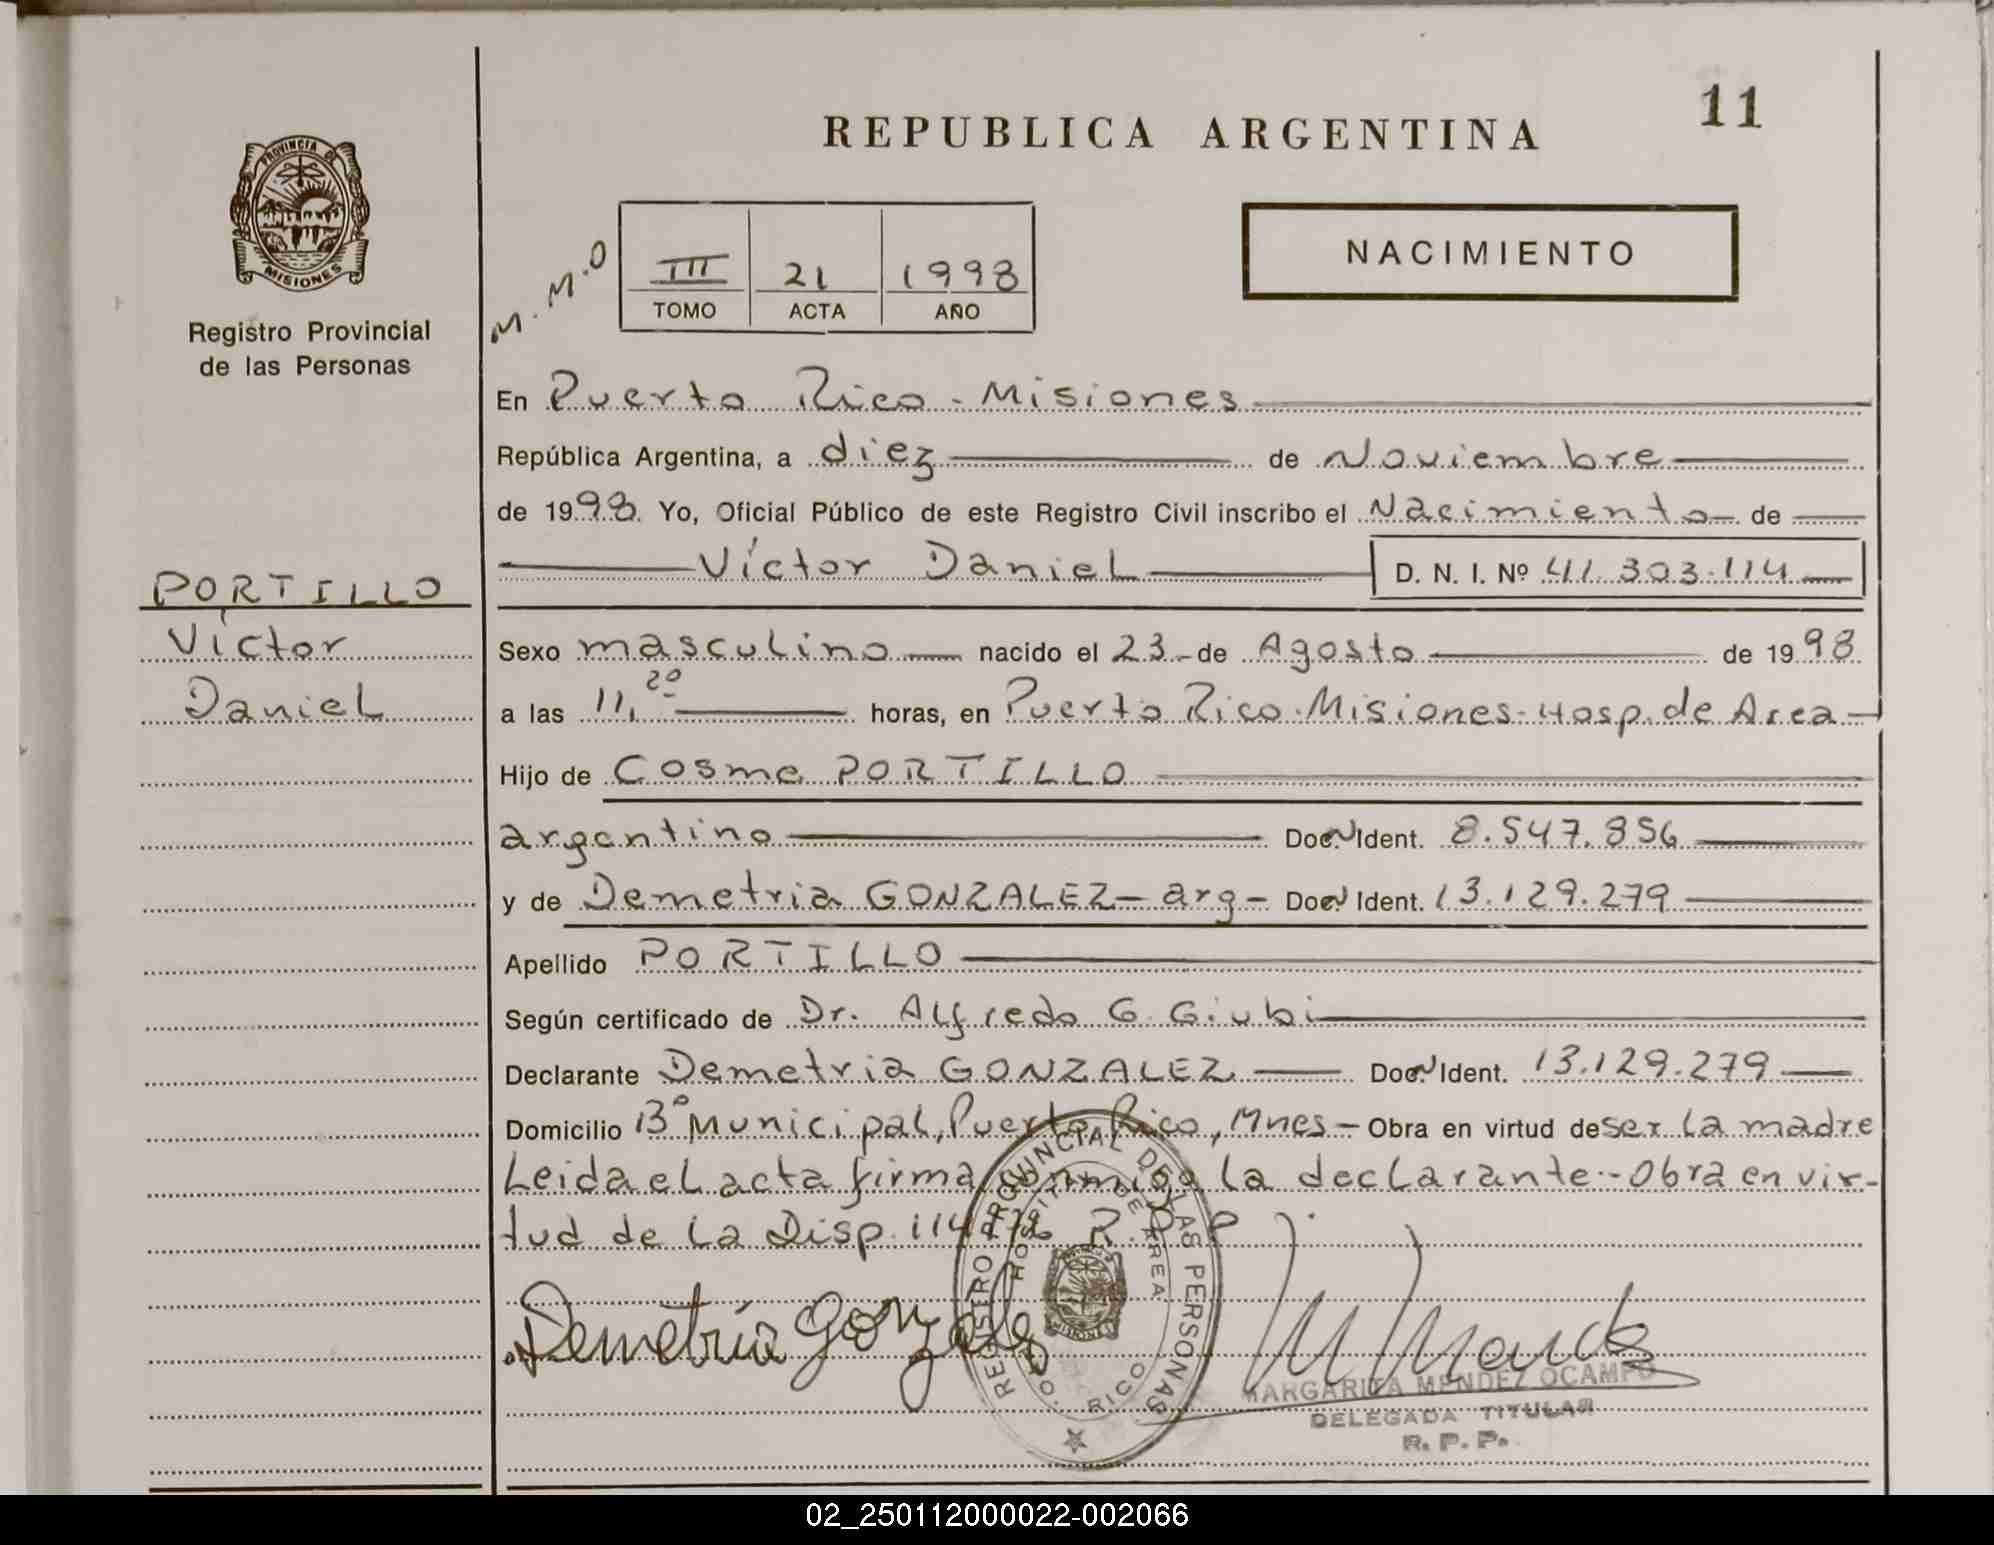 11
REPUBLICA ARGENTINA
PROVINCIA DE
MISIONES
Registro Provincial
de las Personas
NACIMIENTO
M.M.O
III 21 1998
TOMO ACTA AÑO
En Puerto Rico - Misiones
República Argentina, a diez de Noviembre
de 1998. Yo, Oficial Público de este Registro Civil inscribo el Nacimiento de
Víctor Daniel D. N. I. Nº 41.303.114
PORTILLO
Víctor
Daniel
Sexo masculino nacido el 23 - de Agosto de 1998
a las 11,20 horas, en Puerto Rico - Misiones - Hosp. de Area
Hijo de Cosme PORTILLO
argentino Doc. Ident. 8.547.856
y de Demetria GONZALEZ - arg - Doc. Ident. 13.129.279
Apellido PORTILLO
Según certificado de Dr. Alfredo G. Giubi
Declarante Demetria GONZALEZ Doc. Ident. 13.129.279
Domicilio Bº Municipal, Puerto Rico, Mnes - Obra en virtud de ser la madre
Leida el acta firma conmigo la declarante - Obra en vir-
tud de la Disp. 114 R.P.P.
Demetria Gonzalez
REGISTRO PROVINCIAL DE LAS PERSONAS
HOSPITAL DE AREA
PTO. RICO
MARGARITA MENDEZ OCAMPO
DELEGADA TITULAR
R. P. P.
02_250112000022-002066